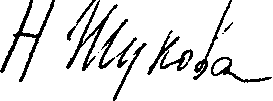 Н Жукова